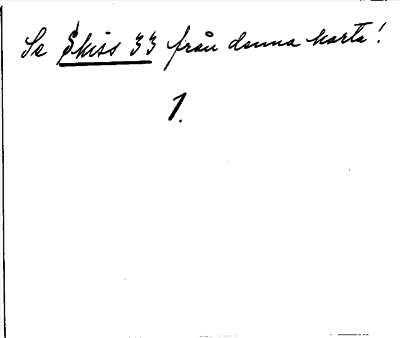 Se Skiss 33 från denna karta!
1.